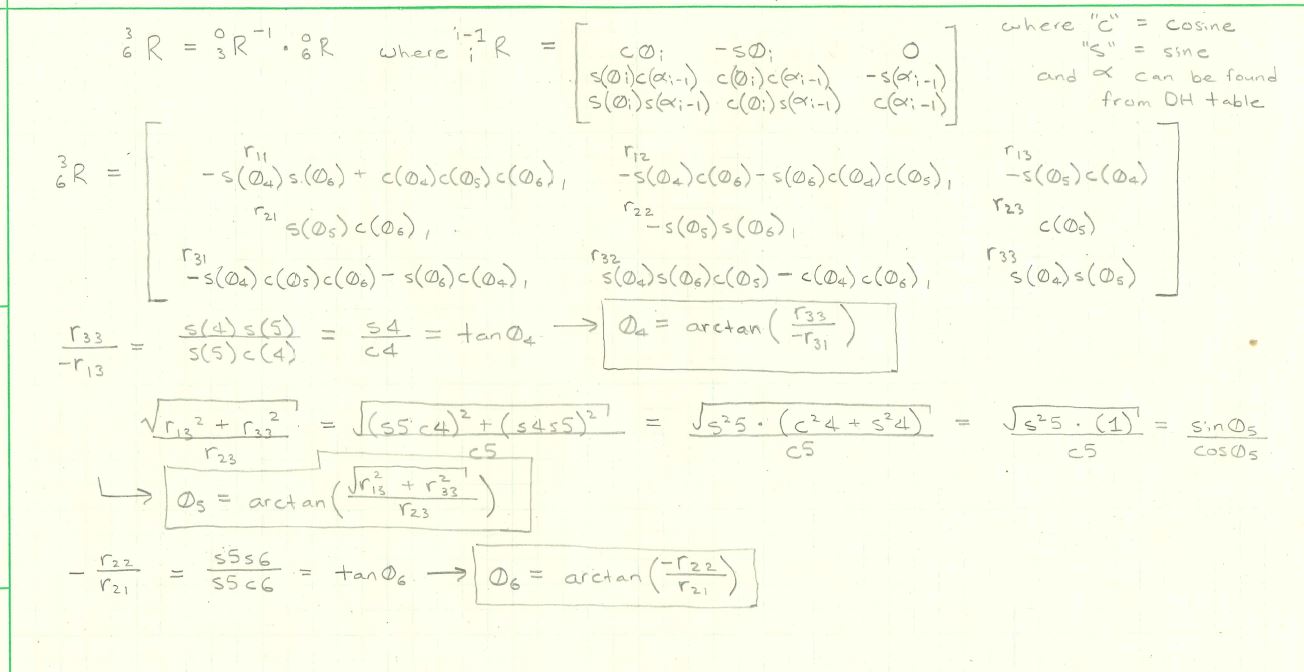 ³₆R = ⁰₃R⁻¹ · ⁰₆R where ⁱ⁻¹ᵢR = [ cØᵢ -sØᵢ 0
s(Øᵢ)c(αᵢ₋₁) c(Øᵢ)c(αᵢ₋₁) -s(αᵢ₋₁)
s(Øᵢ)s(αᵢ₋₁) c(Øᵢ)s(αᵢ₋₁) c(αᵢ₋₁) ]
where "c" = cosine
"s" = sine
and α can be found
from DH table
³₆R = [
r₁₁ r₁₂ r₁₃
-s(Ø₄)s(Ø₆) + c(Ø₄)c(Ø₅)c(Ø₆), -s(Ø₄)c(Ø₆) - s(Ø₆)c(Ø₄)c(Ø₅), -s(Ø₅)c(Ø₄)
r₂₁ s(Ø₅)c(Ø₆), r₂₂ -s(Ø₅)s(Ø₆), r₂₃ c(Ø₅)
r₃₁ r₃₂ r₃₃
-s(Ø₄)c(Ø₅)c(Ø₆) - s(Ø₆)c(Ø₄), s(Ø₄)s(Ø₆)c(Ø₅) - c(Ø₄)c(Ø₆), s(Ø₄)s(Ø₅) ]
r₃₃/-r₁₃ = s(4)s(5)/s(5)c(4) = s4/c4 = tanØ₄ → Ø₄ = arctan(r₃₃/-r₃₁)
√(r₁₃² + r₃₃²)/r₂₃ = √((s5c4)² + (s4s5)²)/c5 = √(s²5 · (c²4 + s²4))/c5 = √(s²5 · (1))/c5 = sinØ₅/cosØ₅
→ Ø₅ = arctan(√(r₁₃² + r₃₃²)/r₂₃)
- r₂₂/r₂₁ = s5s6/s5c6 = tanØ₆ → Ø₆ = arctan(-r₂₂/r₂₁)